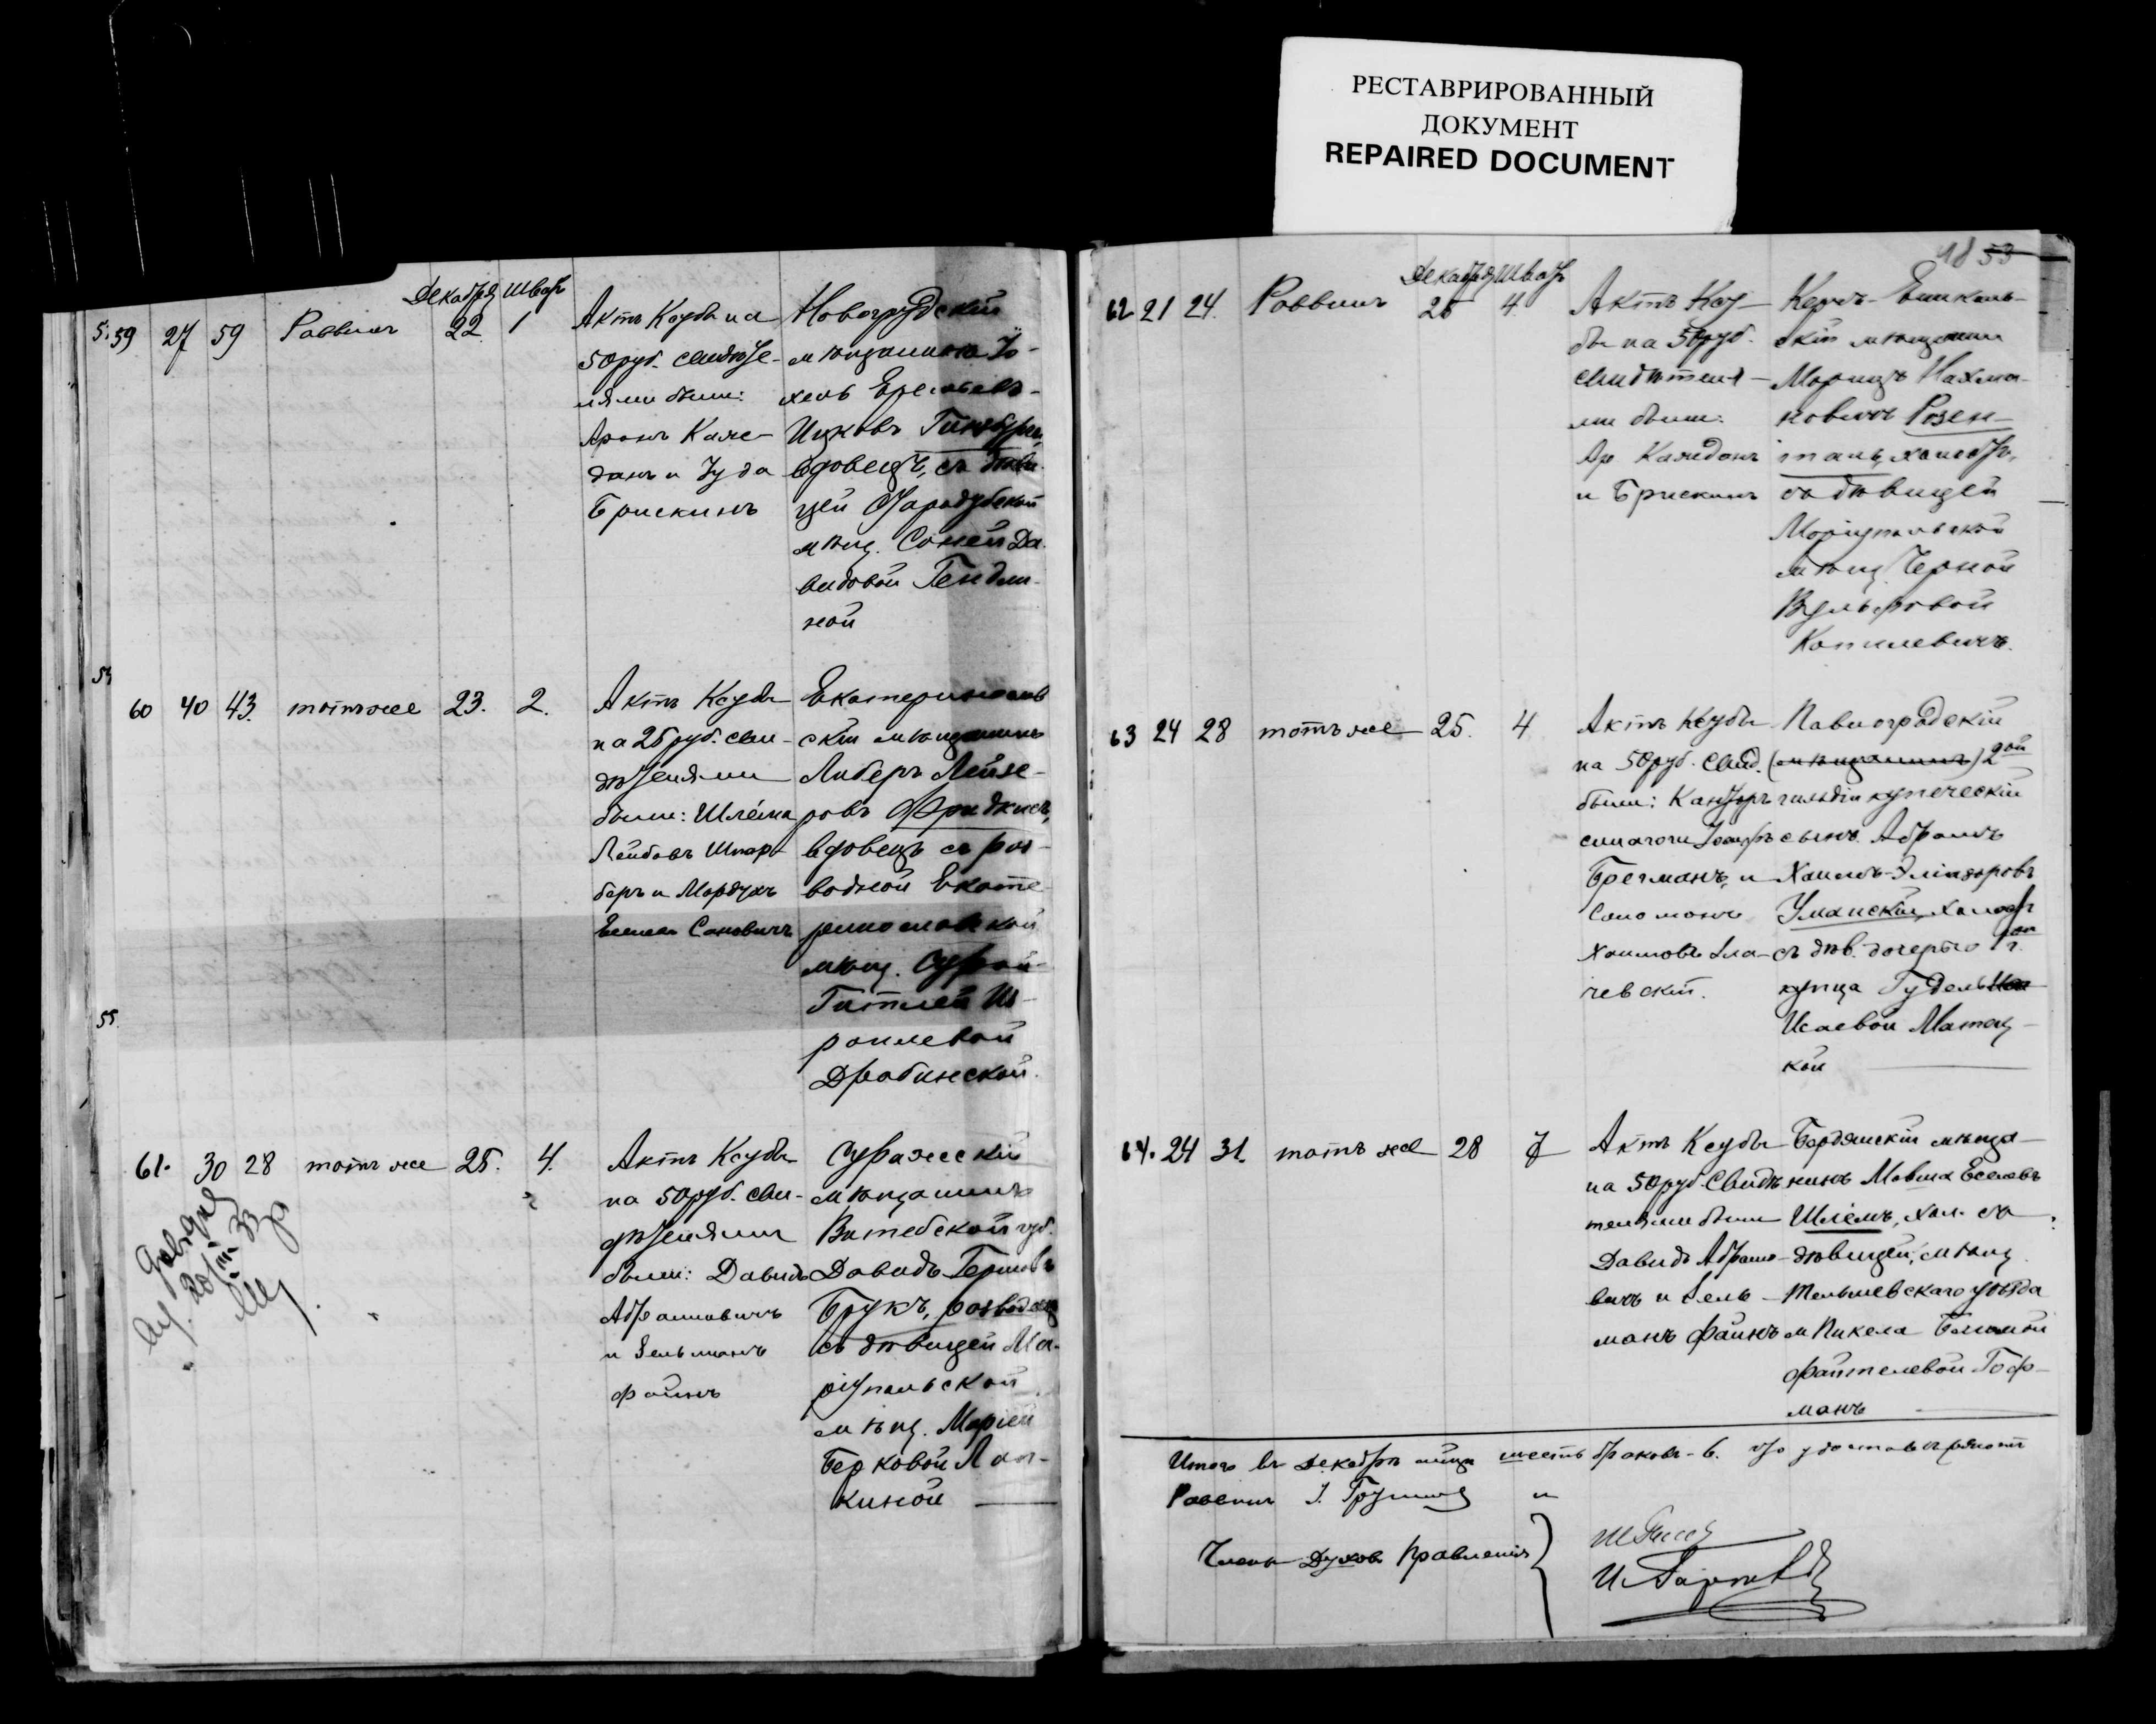 РЕСТАВРИРОВАННЫЙ
ДОКУМЕНТ
REPAIRED DOCUMENT
Декабря Шватъ
59 27 59 Раввинъ 22 1
Актъ Ксубы на
50 руб. свидѣте-
лями были:
Аронъ Каже-
данъ и Іуда
Брискинъ
Новогрудскій
мѣщанинъ Іо-
хель
Ицковъ Гинзбургъ,
вдовецъ, съ дѣви-
цей Стародубской
мѣщ. Соней Да-
видовой Гендли-
ной
54
60 40 43. тотъ же 23. 2.
Актъ Ксубы
на 25 руб. сви-
дѣтелями
были: Шлема
Лейбовъ Шпар-
беръ и Мордухъ
Сановичъ
Екатеринослав
скій мѣщанинъ
Либеръ Лейзе-
ровъ Фридкинъ,
вдовецъ съ раз-
водной Екате-
ринославской
мѣщ. Сурой-
Гитлей Из-
раилевой
Драбинской.
55
61. 30 28 тотъ же 25. 4.
Актъ Ксубы
на 50 руб. сви-
дѣтелями
были: Давидъ
Абрамовичъ
и Зельманъ
Файнъ
Суражскій
мѣщанинъ
Витебской губ.
Давидъ Гершовъ
Брукъ, разведен
съ дѣвицей Ма-
ріупольской
мѣщ. Маріей
Берковой Лап-
киной
18 53
Декабря Шватъ
62 21 24. Раввинъ 25 4
Актъ Ксу-
бы на 50 руб.
свидѣтеля-
ми были:
Ар Кажданъ
и Брискинъ
Керчь-Еникаль-
скій мѣщанинъ
Морицъ Нахма-
новичъ Розен-
таль, холостъ,
съ дѣвицей
Маріупольской
мѣщ. Черной
Вульфовой
Копилевичъ.
63 24 28 тотъ же 25. 4
Актъ Ксубы
на 50 руб. свид.
были: Канторъ
синагоги
Брегманъ, и
Соломонъ
Хаимовъ Зла-
чевскій.
Павлоградскій
(мѣщанинъ) 2ой
гильдіи купеческій
сынъ Абрамъ
Хаимъ-Эліазаровъ
Уманскій, холостъ
съ дѣв. дочерью 1ой г.
купца Гудель
Исаевой Матец-
кой
64. 24 31. тотъ же 28 7
Актъ Ксубы
на 50 руб. Свидѣ
телями были
Давидъ Абрамо-
вичъ и Зель-
манъ Файнъ
Бердянскій мѣща-
нинъ Мовша Еселевъ
Шлемъ, хол. съ
дѣвицей, мѣщ.
Тельшевскаго уѣзда
м Пикела Блюмой
Файтелевой Гоф-
манъ
Итого въ Декабрѣ мѣсц шесть браковъ - 6. что удостовѣряютъ
Раввинъ
и
Члены Духов. Правленія